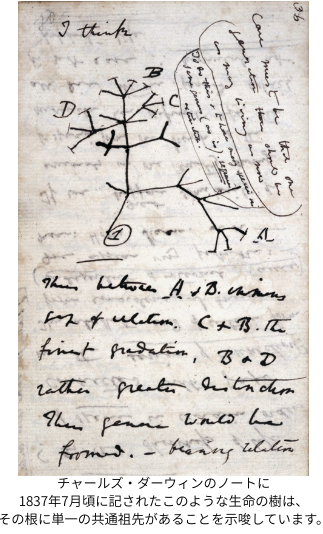 36
I think
Case must be that one
generation then should be
as many living as now
To do this & to have many species in
same genus (as is), requires
extinction.
B
D
C
A
1
Thus between A & B. immens
gap of relation. C & B. the
finest gradation, B & D
rather greater distinction
Thus genera would be
formed. — bearing relation
チャールズ・ダーウィンのノートに
1837年7月頃に記されたこのような生命の樹は、
その根に単一の共通祖先があることを示唆しています。